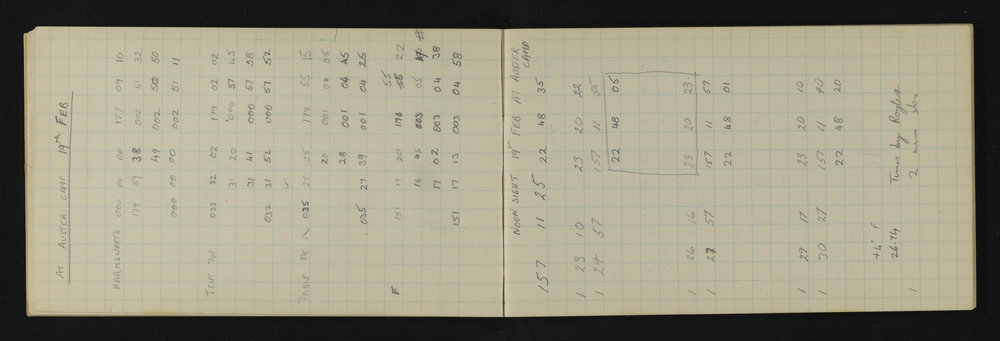 AT AUSTER CAMP 19th FEB
HARMSWORTH 000 00 00 177 09 10
179 59 38 002 61 32
49 002 50
000 00 00 002 51 11
TENT TOP 032 32 02 179 02 02
31 20 000 57 45
31 41 000 57 58
032 31 52 000 57 52
TABLE MT 035 27 35 178 55 15
20 001 04 05
28 001 04 45
035 27 39 001 04 25
F 151 17 20 176 55 22
16 45 003 05
17 02 003 04 38
151 17 13 003 04 58
NOON SIGHT 19th FEB AT AUSTER CAMP
157 11 25 22 48 35
1 23 10 23 20 22
1 57 157 11 55
22 48 05
1 26 16 23 20 23
1 27 57 157 11 59
22 48 01
1 29 17 23 20 10
1 30 27 157 11 40
22 48 20
+4° F
26.74
Times by Rolex
1 2 min slow